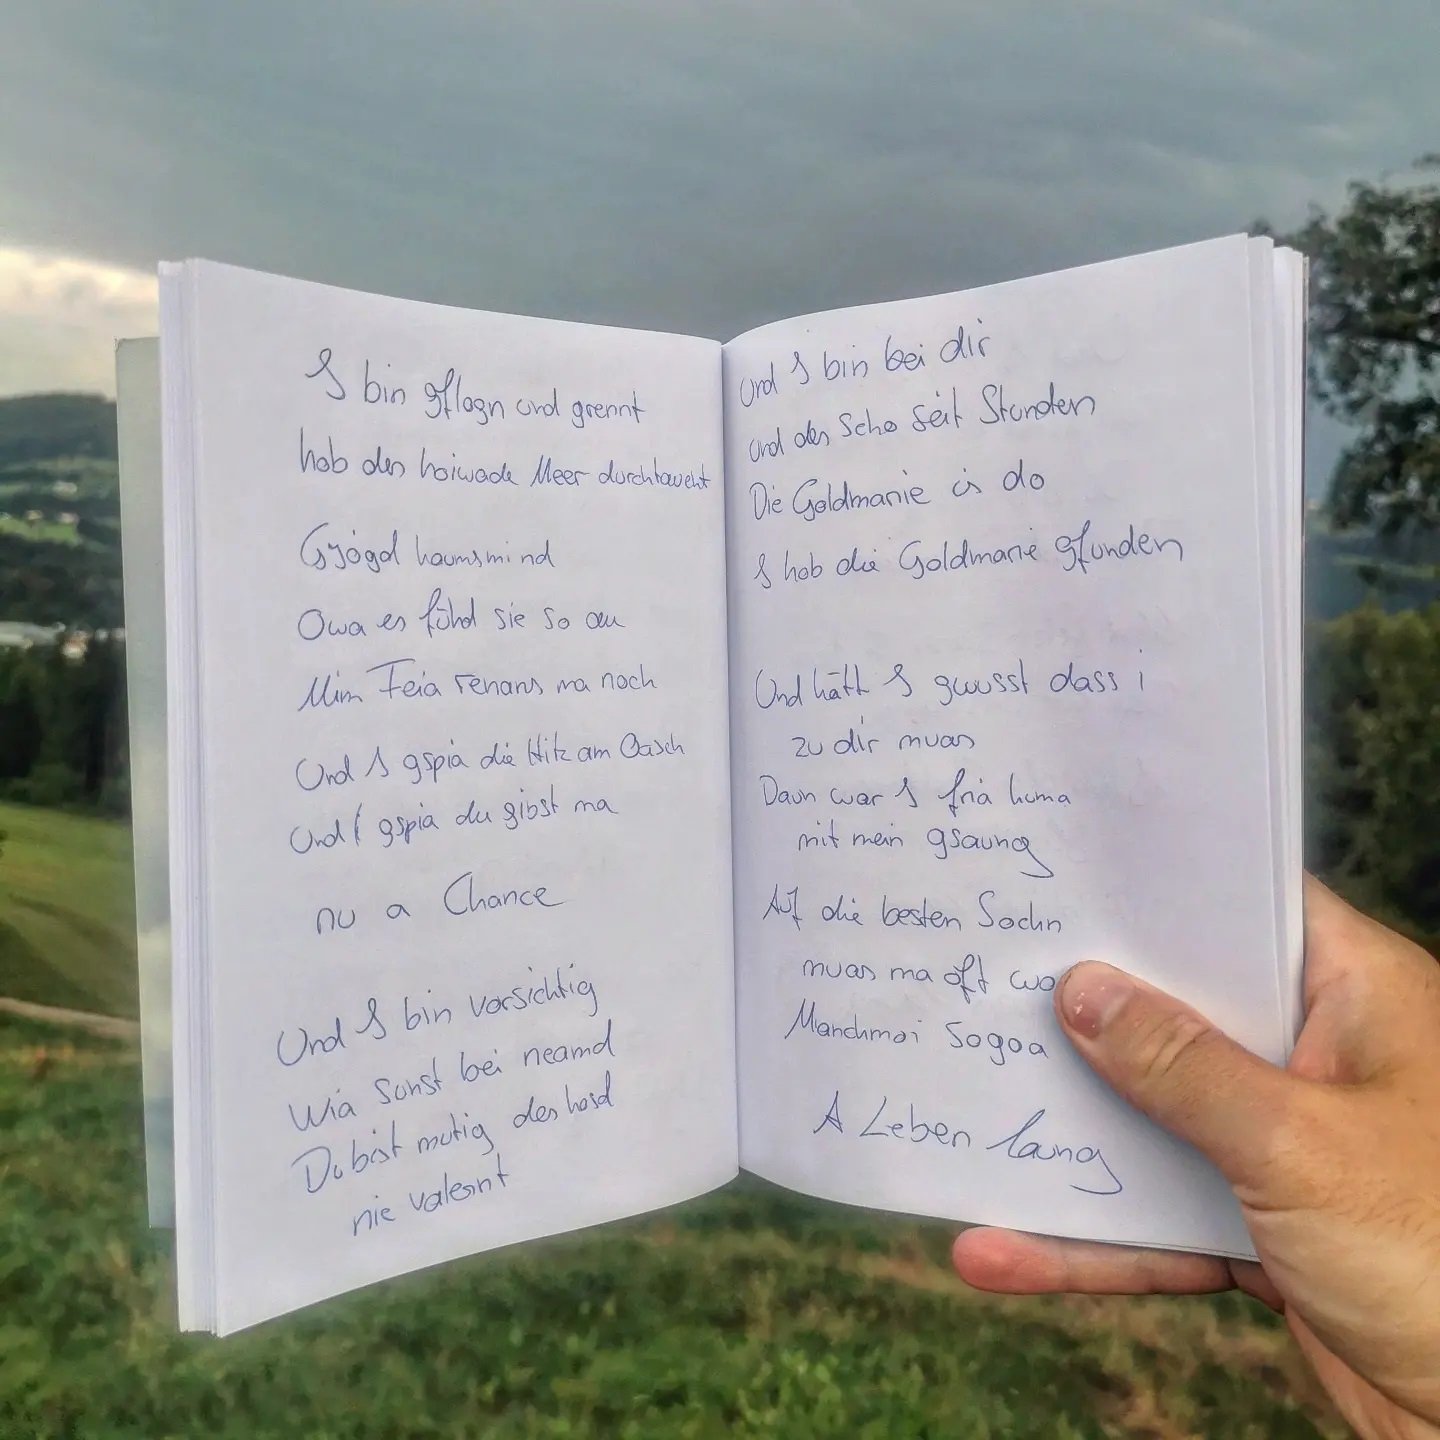 I bin gflogn und grennt
hob des hoiwade Meer durchtaucht
Gjogd haumsmi nd
Owa es fühd sie so au
Mim Feia renans ma noch
Und I gspia die Hitz am Oasch
Und I gspia du gibst ma
nu a Chance
Und I bin vorsichtig
Wia sonst bei neamd
Du bist mutig des hosd
nie valernt
und I bin bei dir
und des scho seit Stunden
Die Goldmarie is do
I hob die Goldmarie gfunden
Und hätt I gwusst dass i
zu dir muas
Daun war I fria kuma
mit mein gsaung
Auf die besten Sochn
muas ma oft wo
Manchmoi sogoa
A Leben laung